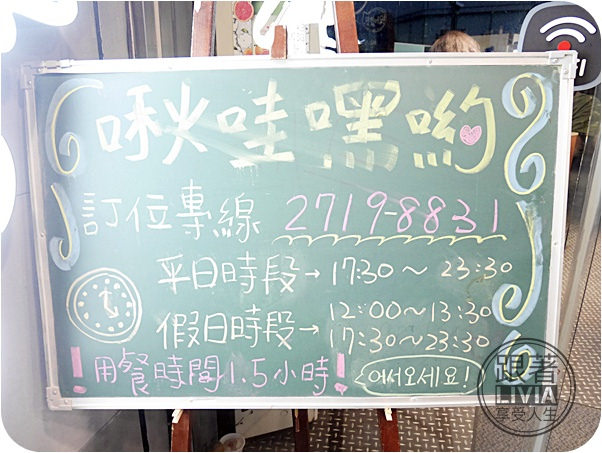 啾哇嘿喲
訂位專線 2719-8831
平日時段→ 17:30～23:30
假日時段→ 12:00～13:30
17:30～23:30
！用餐時間1.5小時！
어서오세요!
跟著
LIVIA
享受人生